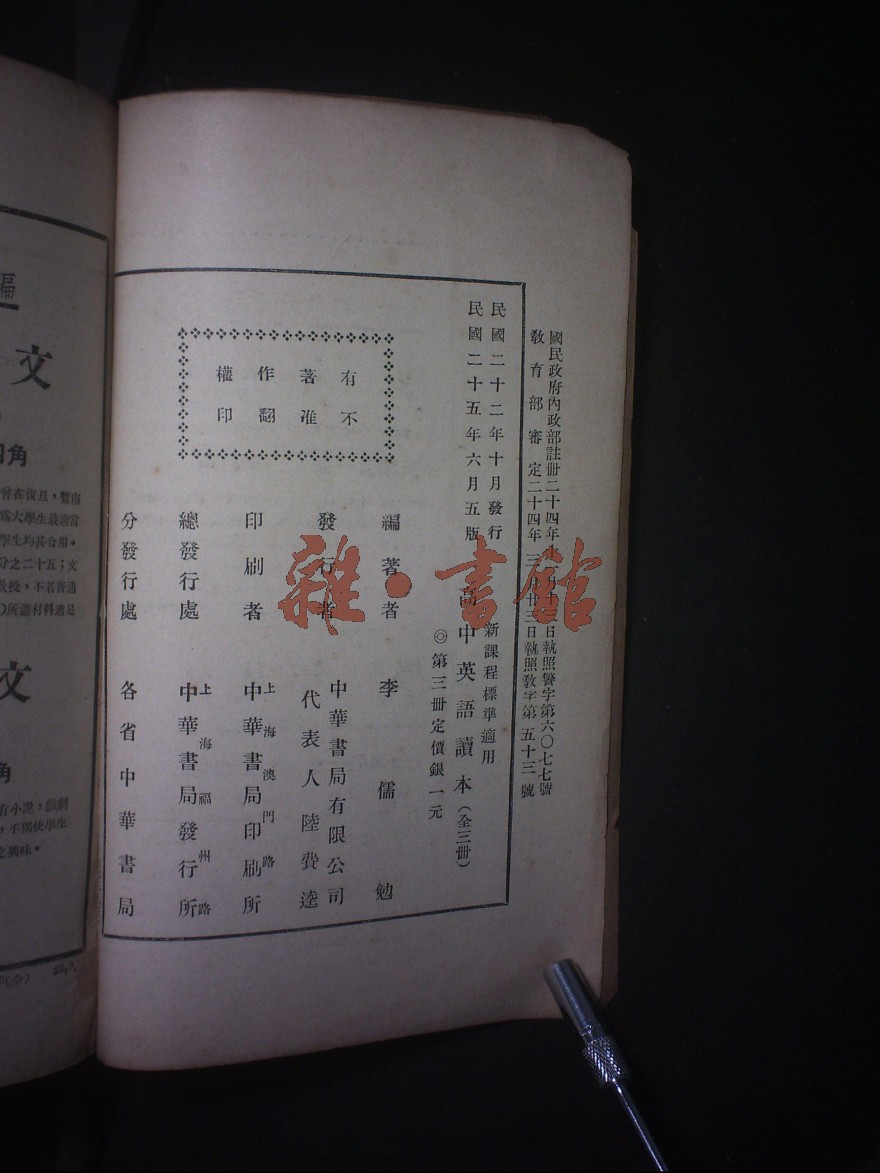 國民政府內政部註冊二十四年十月十三日執照警字第六〇七七號
教育部審定二十四年三月廿三日執照教字第五十三號
民國二十二年十月發行
民國二十五年六月五版
新課程標準適用
高中英語讀本(全三冊)
◎第三冊定價銀一元
有著作權
不准翻印
編著者 李儒勉
發行者 中華書局有限公司
代表人陸費逵
印刷者 上海澳門路
中華書局印刷所
總發行處 上海福州路
中華書局發行所
分發行處 各省中華書局
雜·書館
文
角
曾在復旦,暨南
學生均甚合用。
分之二十五;文
教授,不若普通
)所選材料適足
文
角
有小說,戲劇
,不獨使學生
之興味。
(全)